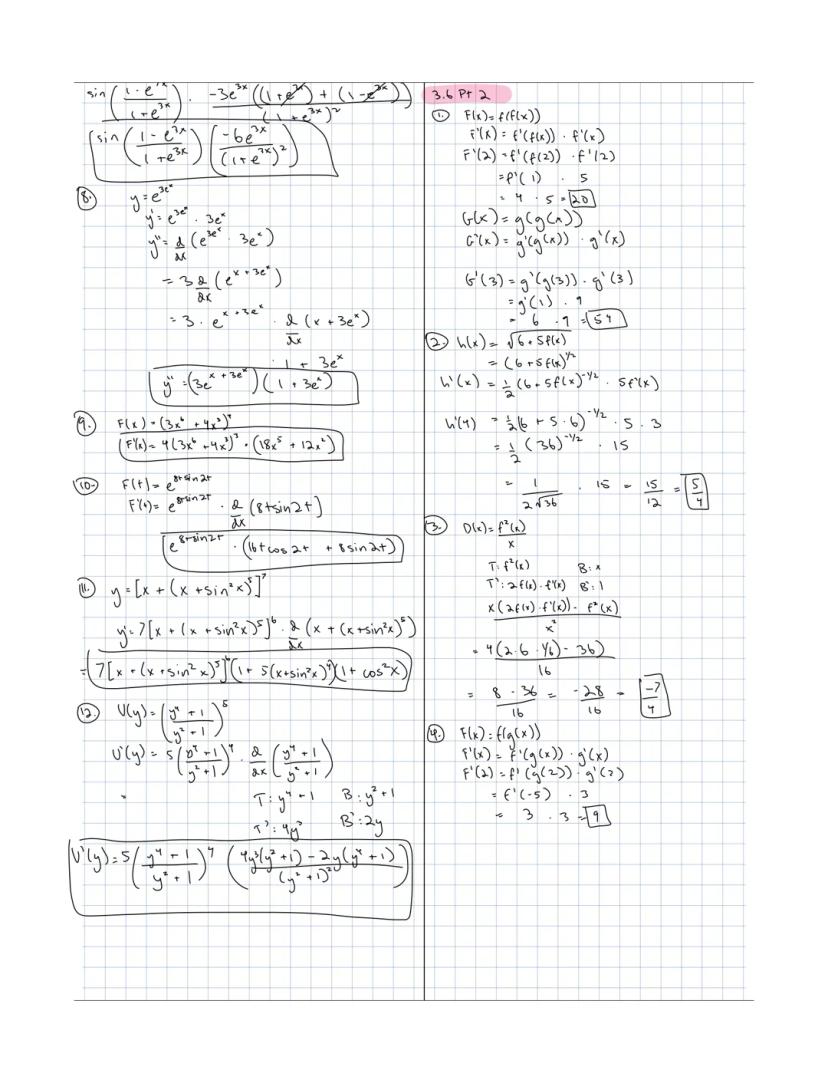 sin ( 1 - e^3x / 1 + e^3x ) · -3e^3x ((1 + e^3x) + (1 - e^3x)) / (1 + e^3x)^2
sin ( 1 - e^3x / 1 + e^3x ) ( -6e^3x / (1 + e^3x)^2 )
8. y = e^3e^x
y' = e^3e^x · 3e^x
y'' = d/dx (e^3e^x · 3e^x)
= 3 d/dx (e^x + 3e^x)
= 3 · e^x + 3e^x · d/dx (x + 3e^x)
· 1 + 3e^x
y'' = (3e^x + 3e^x) (1 + 3e^x)
9. F(x) = (3x^6 + 4x^3)^4
F'(x) = 4(3x^6 + 4x^3)^3 · (18x^5 + 12x^2)
10. F(t) = e^8tsin2t
F'(t) = e^8tsin2t · d/dx [8tsin2t]
e^8tsin2t · (16tcos2t + 8sin2t)
11. y = [x + (x + sin^2x)^5]^7
y' = 7[x + (x + sin^2x)^5]^6 · d/dx (x + (x + sin^2x)^5)
= 7[x + (x + sin^2x)^5]^6 (1 + 5(x + sin^2x)^4)(1 + cos^2x)
12. U(y) = (y^4 + 1 / y^2 + 1)^5
U'(y) = 5(y^4 + 1 / y^2 + 1)^4 · d/dx (y^4 + 1 / y^2 + 1)
= T: y^4 + 1 B: y^2 + 1
T': 4y^3 B': 2y
U'(y) = 5(y^4 + 1 / y^2 + 1)^4 (4y^3(y^2 + 1) - 2y(y^4 + 1) / (y^2 + 1)^2)
3.6 Pt 2
1. F(x) = f(f(x))
F'(x) = f'(f(x)) · f'(x)
F'(2) = f'(f(2)) · f'(2)
= f'(1) · 5
= 4 · 5 = 20
G(x) = g(g(x))
G'(x) = g'(g(x)) · g'(x)
G'(3) = g'(g(3)) · g'(3)
= g'(1) · 9
= 6 · 9 = 54
2. h(x) = √6 + 5f(x)
= (6 + 5f(x)^1/2
h'(x) = 1/2 (6 + 5f(x)^-1/2 · 5f'(x)
h'(4) = 1/2 (6 + 5 · 6)^-1/2 · 5 · 3
= 1/2 (36)^-1/2 · 15
= 1 / 2√36 · 15 = 15/12 = 5/4
3. D(x) = f^2(x) / x
T: f^2(x) B: x
T': 2f(x) · f'(x) B': 1
x(2f(x) · f'(x)) - f^2(x) / x^2
= 4(2 · 6 · 1/6) - 36) / 16
= 8 - 36 / 16 = -28 / 16 = -7/4
4. F(x) = f(g(x))
F'(x) = f'(g(x)) · g'(x)
F'(2) = f'(g(2)) · g'(2)
= f'(-5) · 3
= 3 · 3 = 9